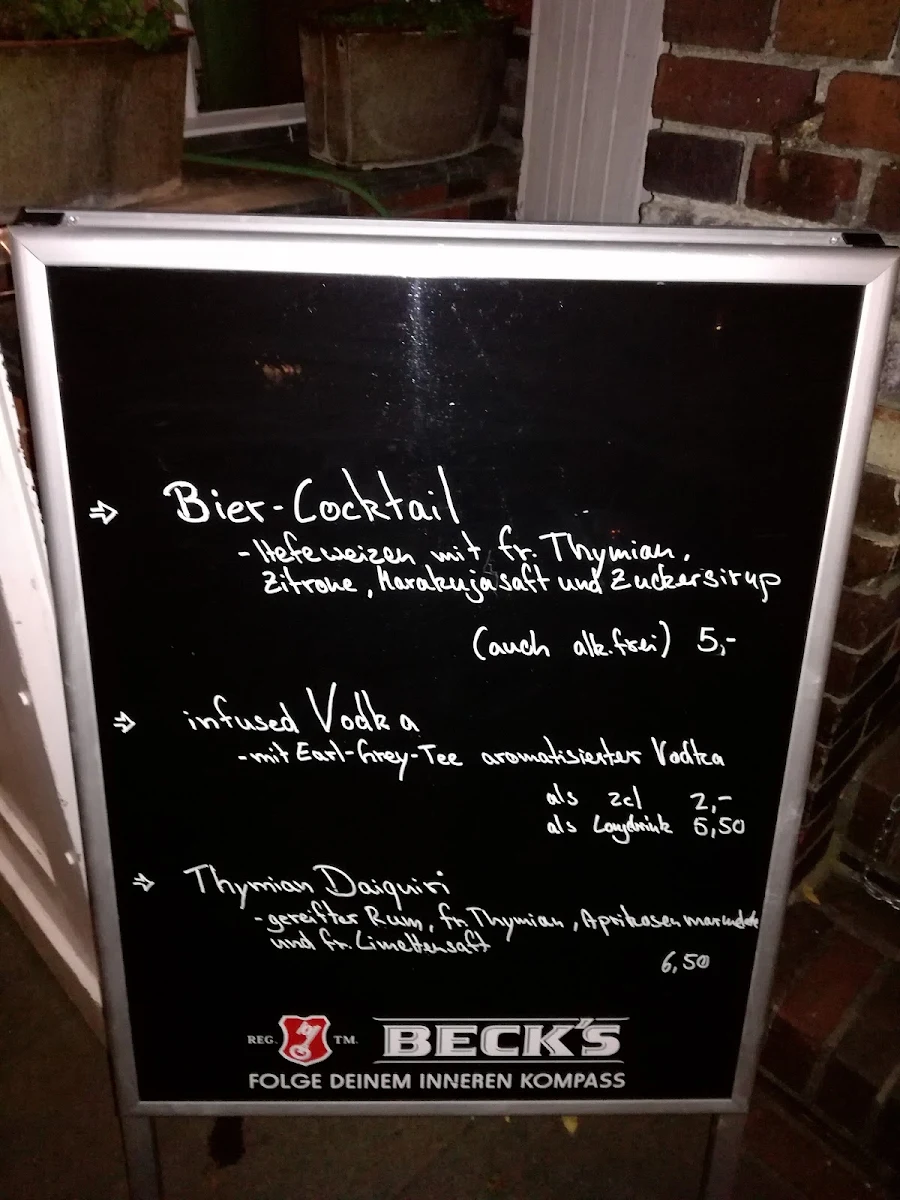 ⇒ Bier-Cocktail
- Hefeweizen mit fr. Thymian,
Zitrone, Marakujasaft und Zuckersirup
(auch alk.frei) 5,-
⇒ infused Vodka
- mit Earl-Grey-Tee aromatisierter Vodka
als 2cl 2,-
als Longdrink 6,50
⇒ Thymian Daiquiri
- gereifter Rum, fr. Thymian, Aprikosenmarmelade
und fr. Limettensaft
6,50
REG. TM. BECK'S
FOLGE DEINEM INNEREN KOMPASS